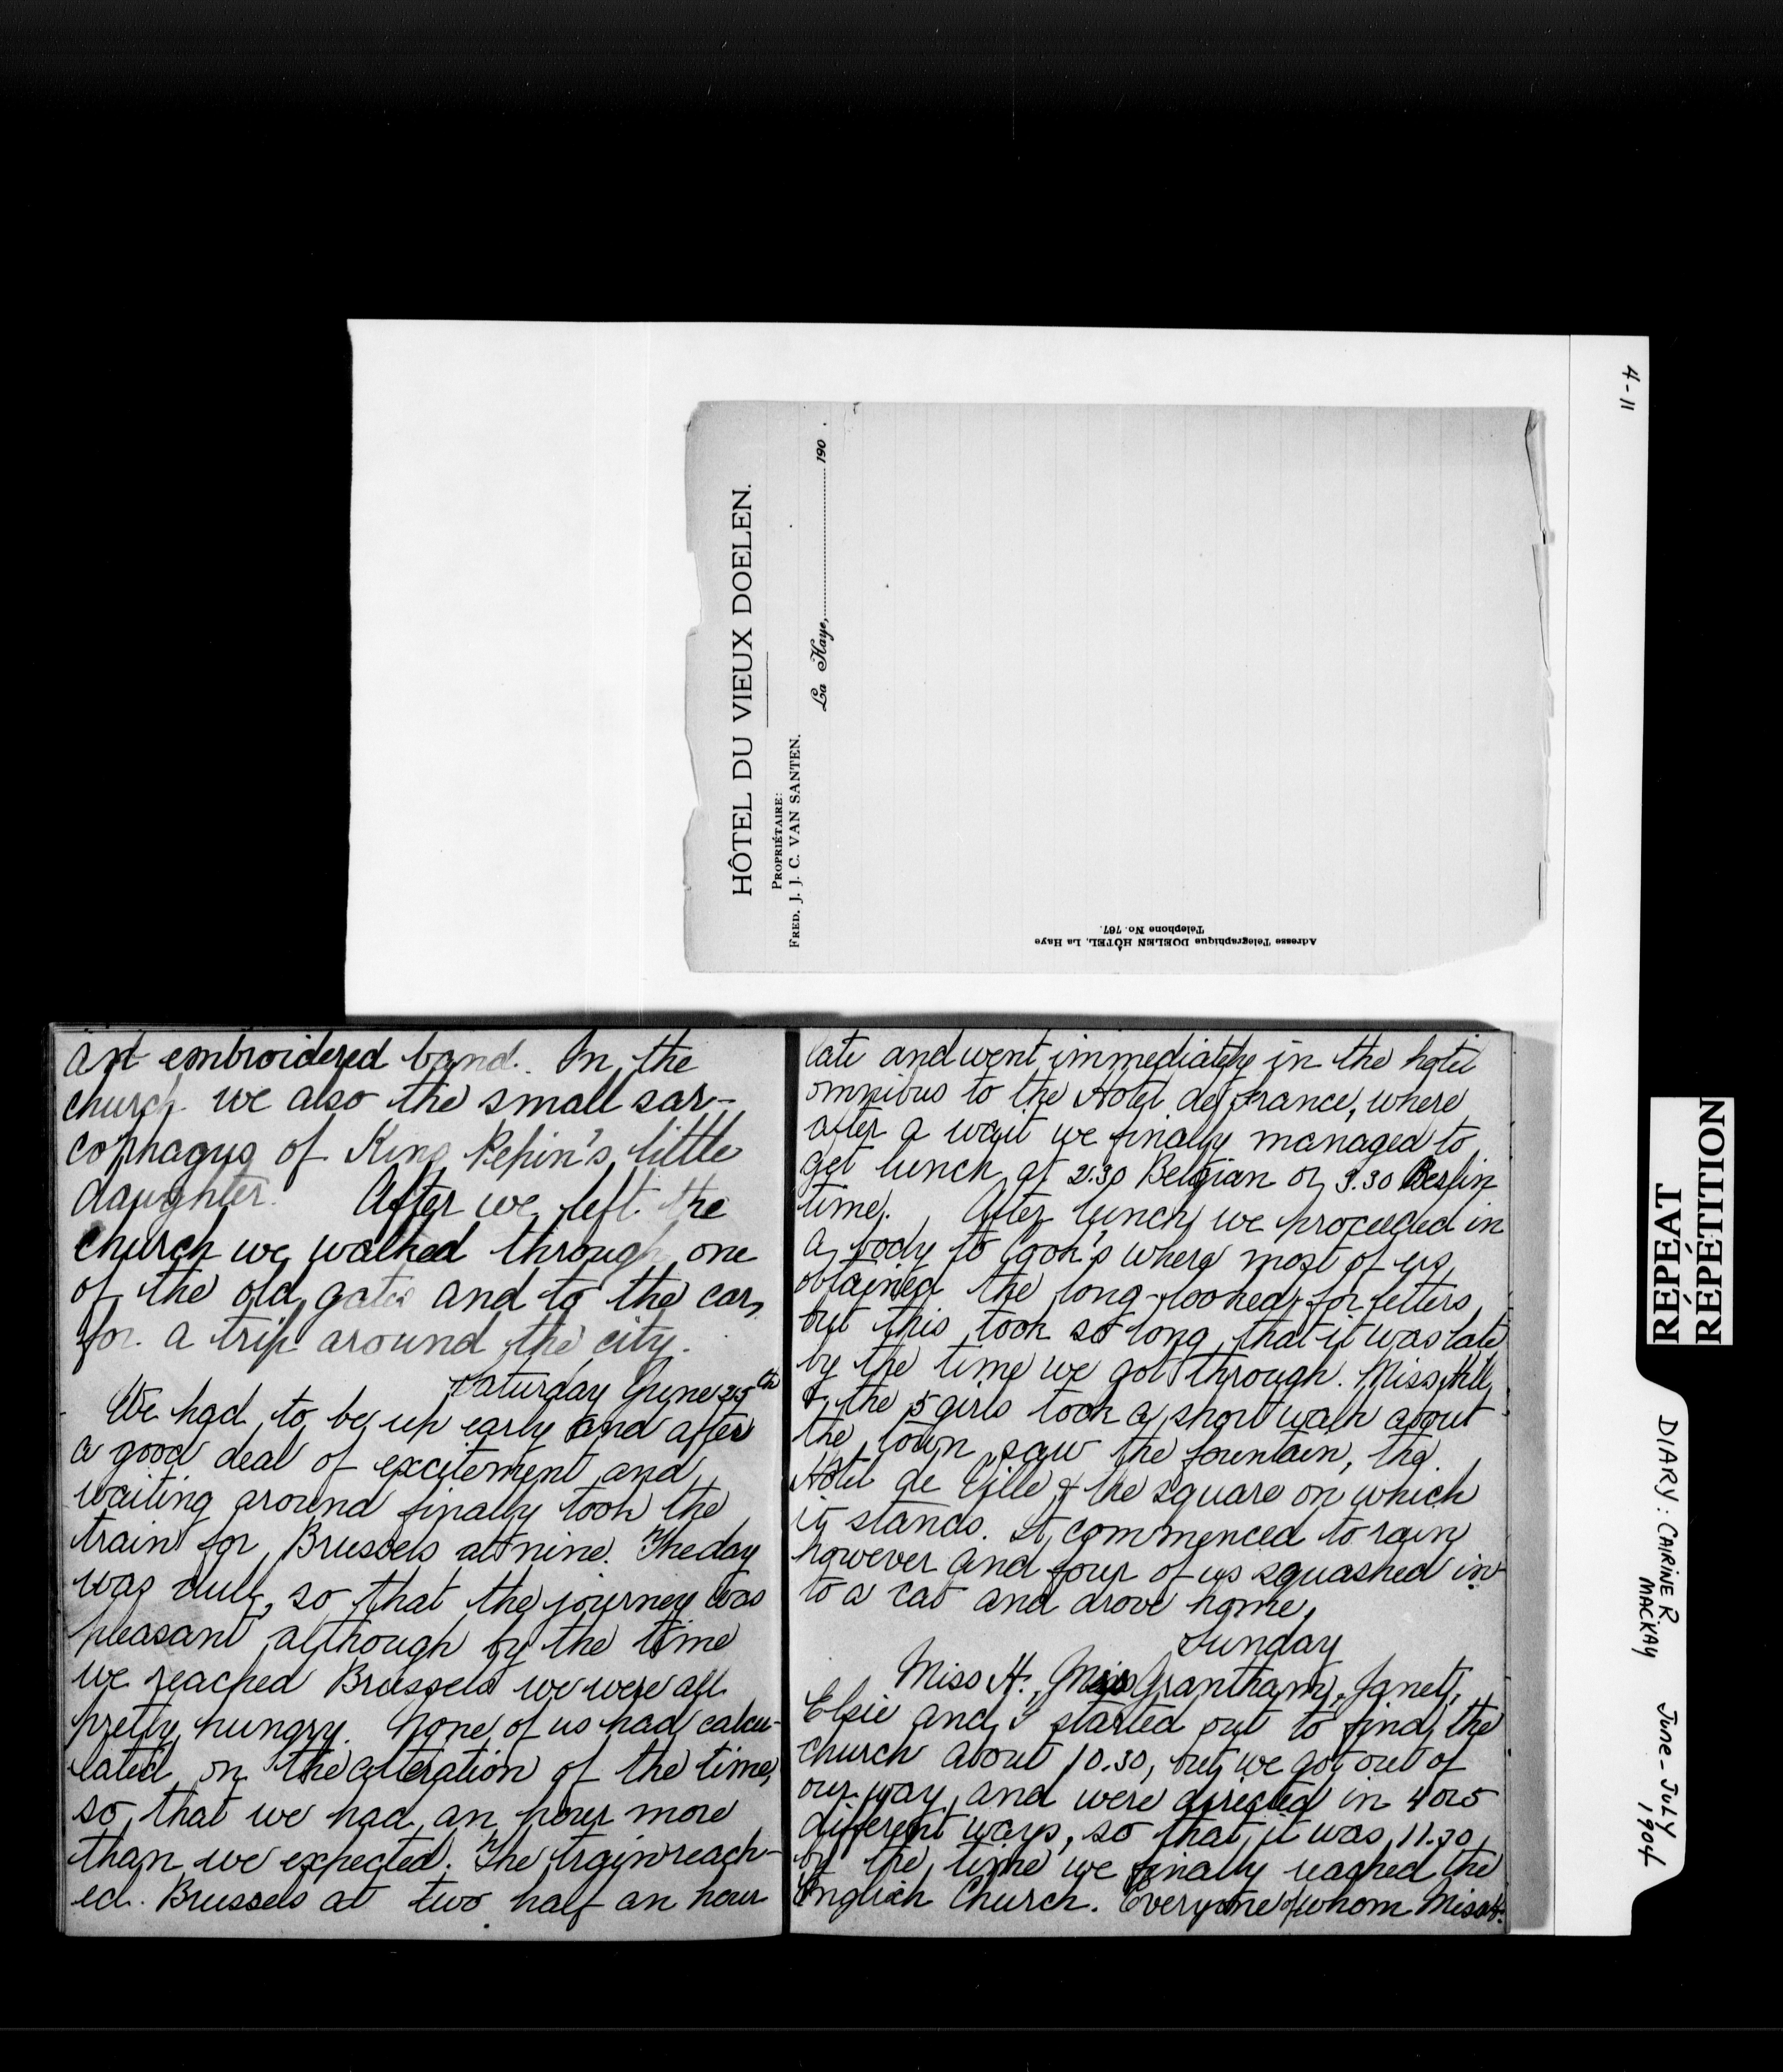 4-11
HÔTEL DU VIEUX DOELEN.
PROPRIÉTAIRE:
FRED. J. J. C. VAN SANTEN.
La Haye, 190 .
Adresse Telegraphique DOELEN HÔTEL, La Haye
Telephone No. 767.
an embroidered band. In the
church we also the small sar-
cophagus of King Pepin's little
daughter. After we left the
church we walked through one
of the old gates and to the car,
for a trip around the city.
Saturday June 25th
We had to be up early and after
a good deal of excitement and
waiting around finally took the
train for Brussels at nine. The day
was dull, so that the journey was
pleasant although by the time
we reached Brussels we were all
pretty hungry. None of us had calcu-
lated on the alteration of the time,
so that we had an hour more
than we expected. The train reach-
ed Brussels at two half an hour
late and went immediately in the hotel
omnibus to the Hotel de France, where
after a wait we finally managed to
get lunch at 2.30 Belgian or 3.30 Berlin
time. After lunch we proceeded in
a body to Cook's where most of us
obtained the long-looked for letters,
but this took so long that it was late
by the time we got through. Miss Hill
& the 5 girls took a short walk about
the town saw the fountain, the
Hôtel de Ville & the square on which
it stands. It commenced to rain
however and four of us squashed in
to a cab and drove home,
Sunday
Miss H., Miss Grantham, Janet,
Elsie and I started out to find the
church about 10.30, but we got out of
our way, and were directed in 4 or 5
different ways, so that it was 11.30
by the time we finally reached the
English Church. Everyone of whom Miss H.
REPEAT
RÉPÉTITION
DIARY: CAIRINE R.
MACKAY
JUNE - JULY
1904